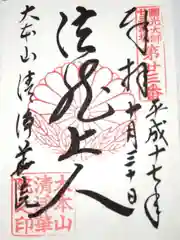 圓光大師
第廿三番
奉拝
平成十七年
十月三十日
法然上人
大本山清浄華院
大本山
清浄華
院印